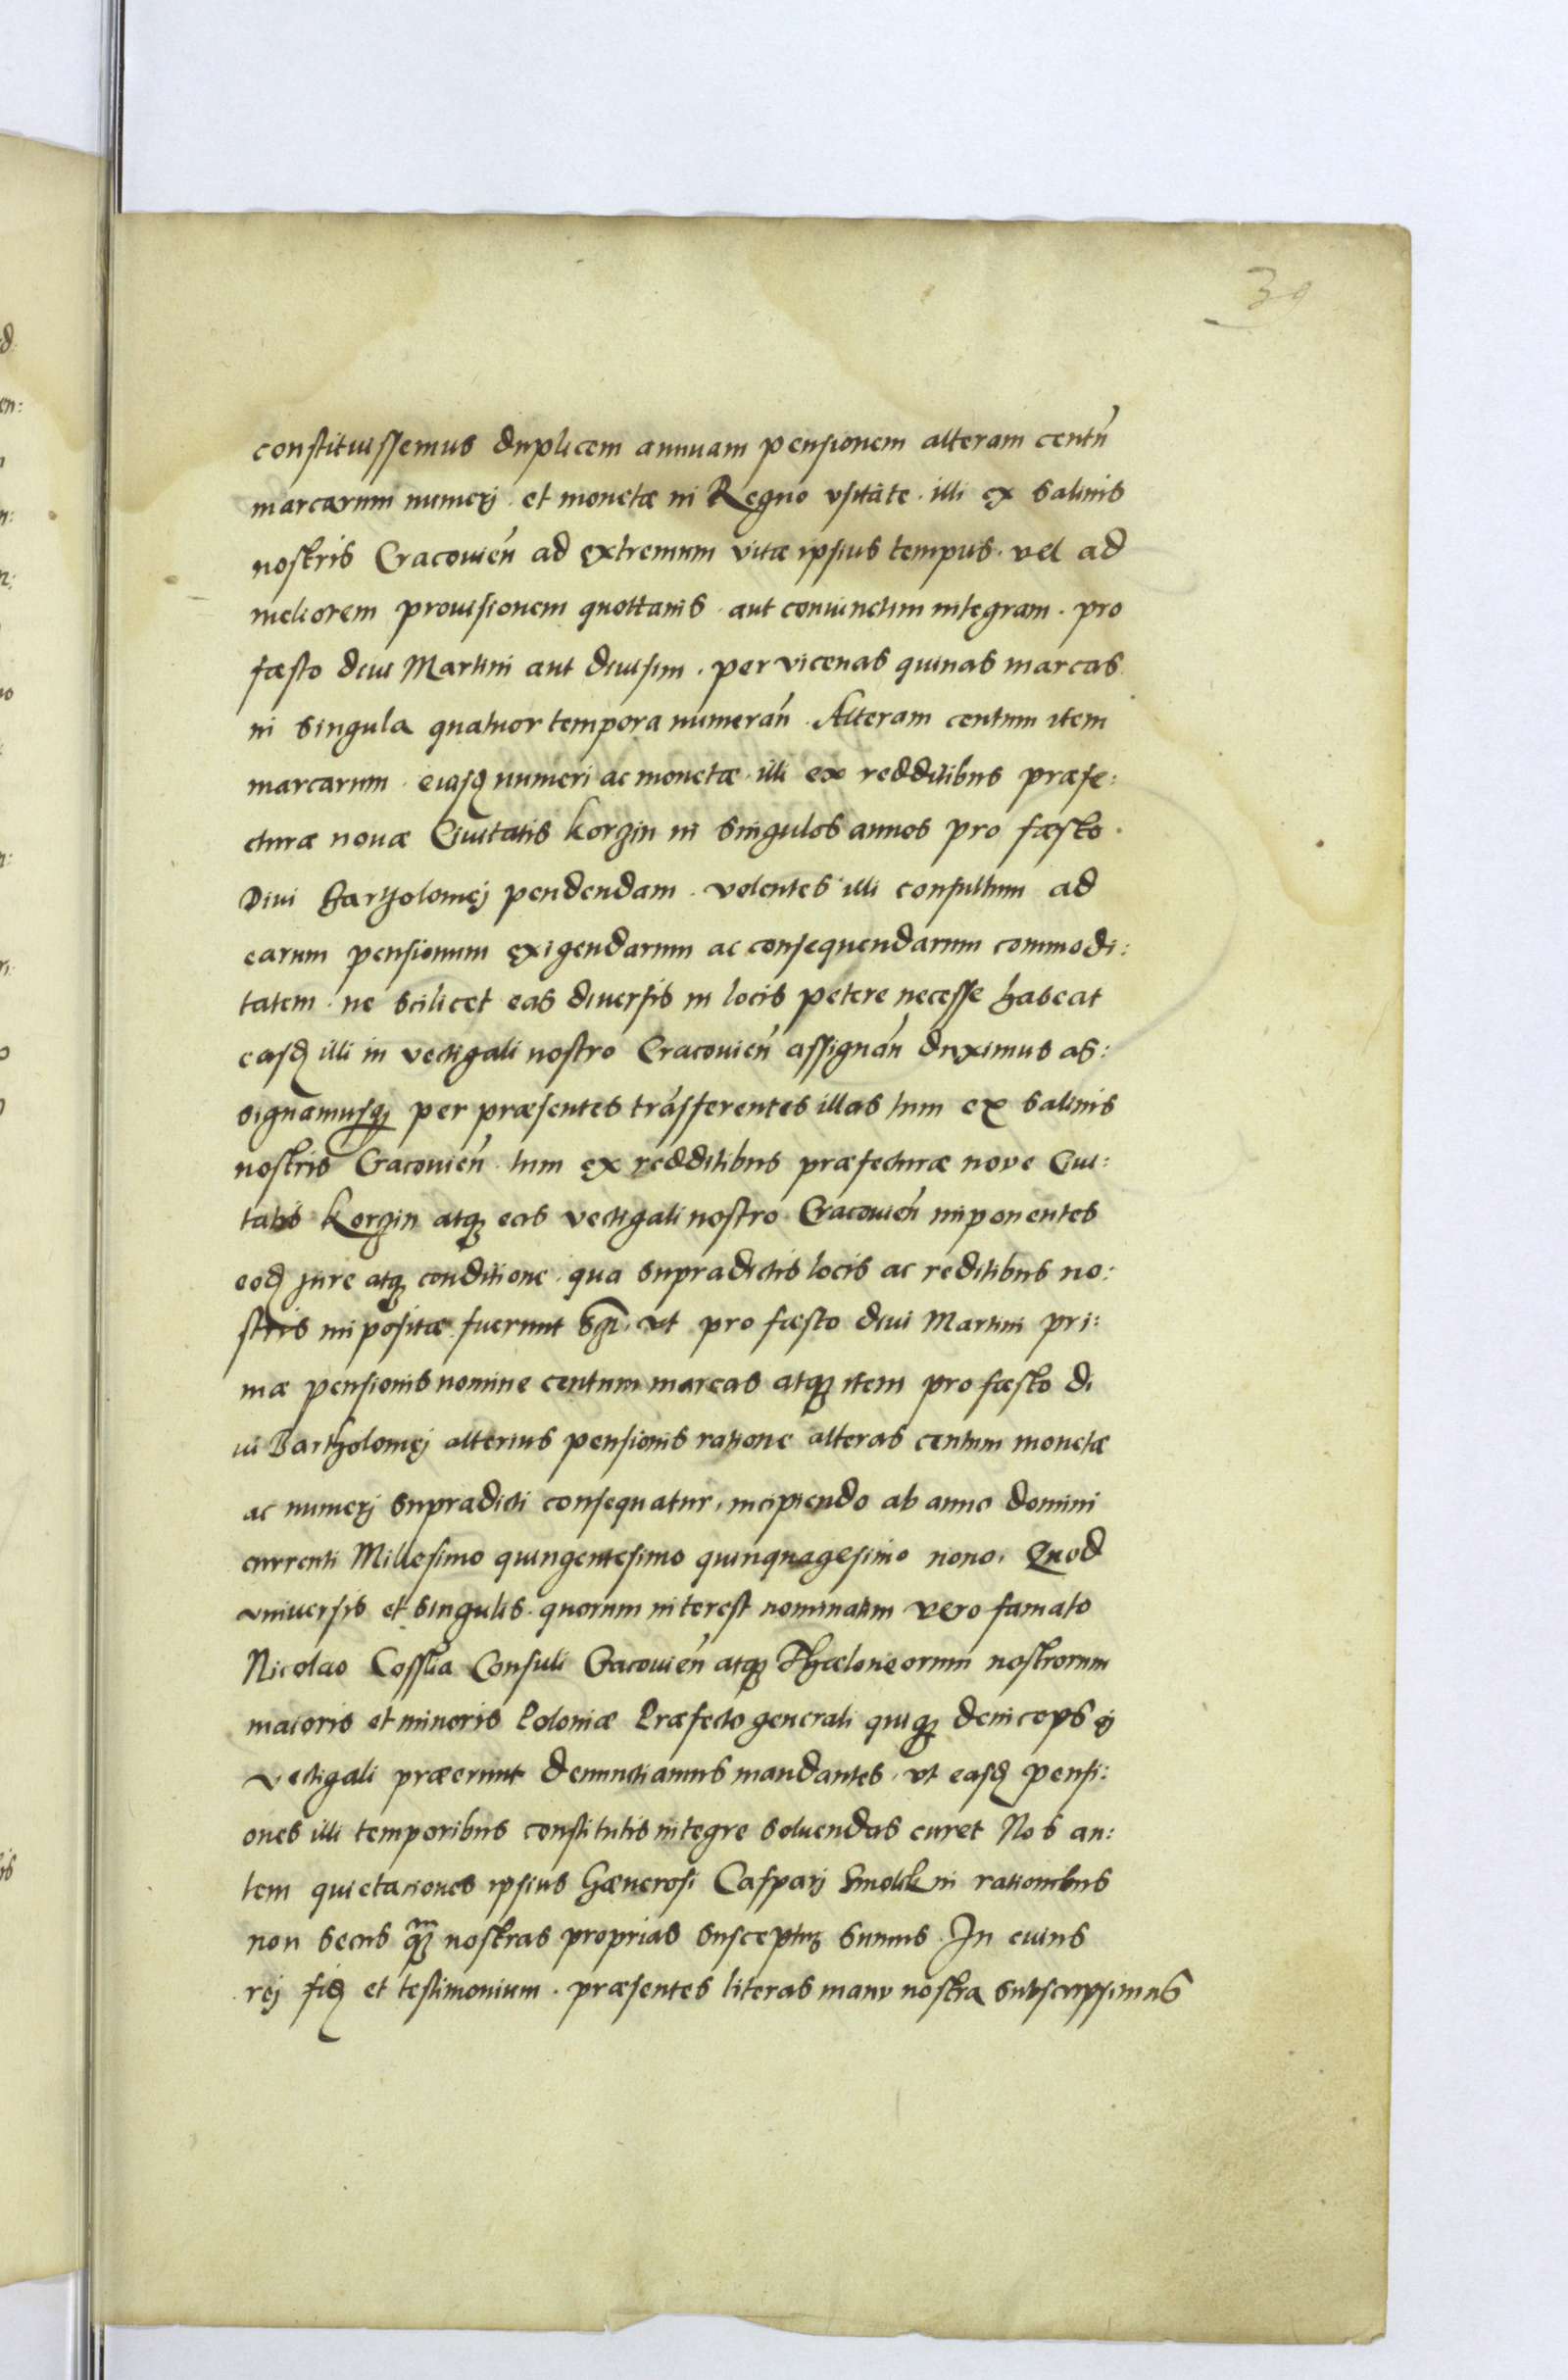 39
constituissemus duplicem annuam pensionem alteram centũ
marcarum numerj et monetæ in Regno vsitate illi ex salinis
nostris Cracouieñ ad extremum vitæ ipsius tempus vel ad
meliorem prouisionem quottanis aut coniunctim integram pro
fæsto diui Martini aut diuisim per vicenas quinas marcas
in singula quatuor tempora numerañ Alteram centum item
marcarum eiusdẽ numeri ac monetæ illi ex redditibus præfe:
cturæ nouæ Ciuitatis Korzin in singulos annos pro fæsto
Diui Bartholomej pendendam volentes illi consultum ad
earum pensionum exigendarum ac consequendarum commodi:
tatem ne scilicet eas diuersis in locis petere necesse habeat
easd illi in vectigali nostro Cracouieñ assignañ duximus as:
signamusq per præsentes trãsferentes illas tum ex salinis
nostris Cracouieñ tum ex redditibus præfecturæ nove Ciui:
tatis Korzin atq eas vectigali nostro Cracouieñ imponentes
eod jure atq conditione qua supradictis locis ac reditibus no:
stris impositæ fuerunt vt pro fæsto diui Martini pri:
mæ pensionis nomine centum marcas atq item pro fæsto di
ui Bartholomej alterius pensionis ratione alteras centum monetæ
ac numerj supradicti consequatur, incipiendo ab anno domini
currenti Millesimo quingentesimo quinquagesimo nono. Quod
vniuersis et singulis quorum interest nominatim vero famato
Nicolao Consuli Cracouieñ atq Thæloneorum nostrorum
maioris et minoris Poloniæ Præfecto generali quiq deinceps ej
vectigali præerunt denunctiamus mandantes vt easd pensi:
ones illi temporibus constitutis integre soluendas curet Nos au:
tem quietationes ipsius Gænerosi Casparj Smolik in rationibus
non secus qm nostras proprias suscepturj sumus In cuius
rej fid et testimonium præsentes literas manu nostra subscripsimus